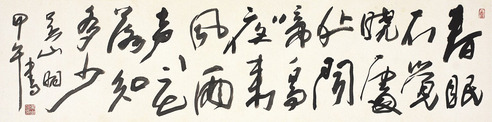 春眠
不覺
曉處
处聞
啼鳥
夜来
風雨
声花
落知
多少
吴山明
甲午書